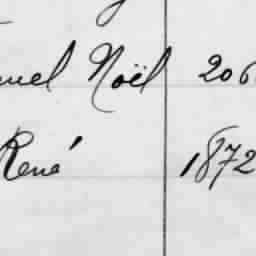 uel Noël 206
René 1872